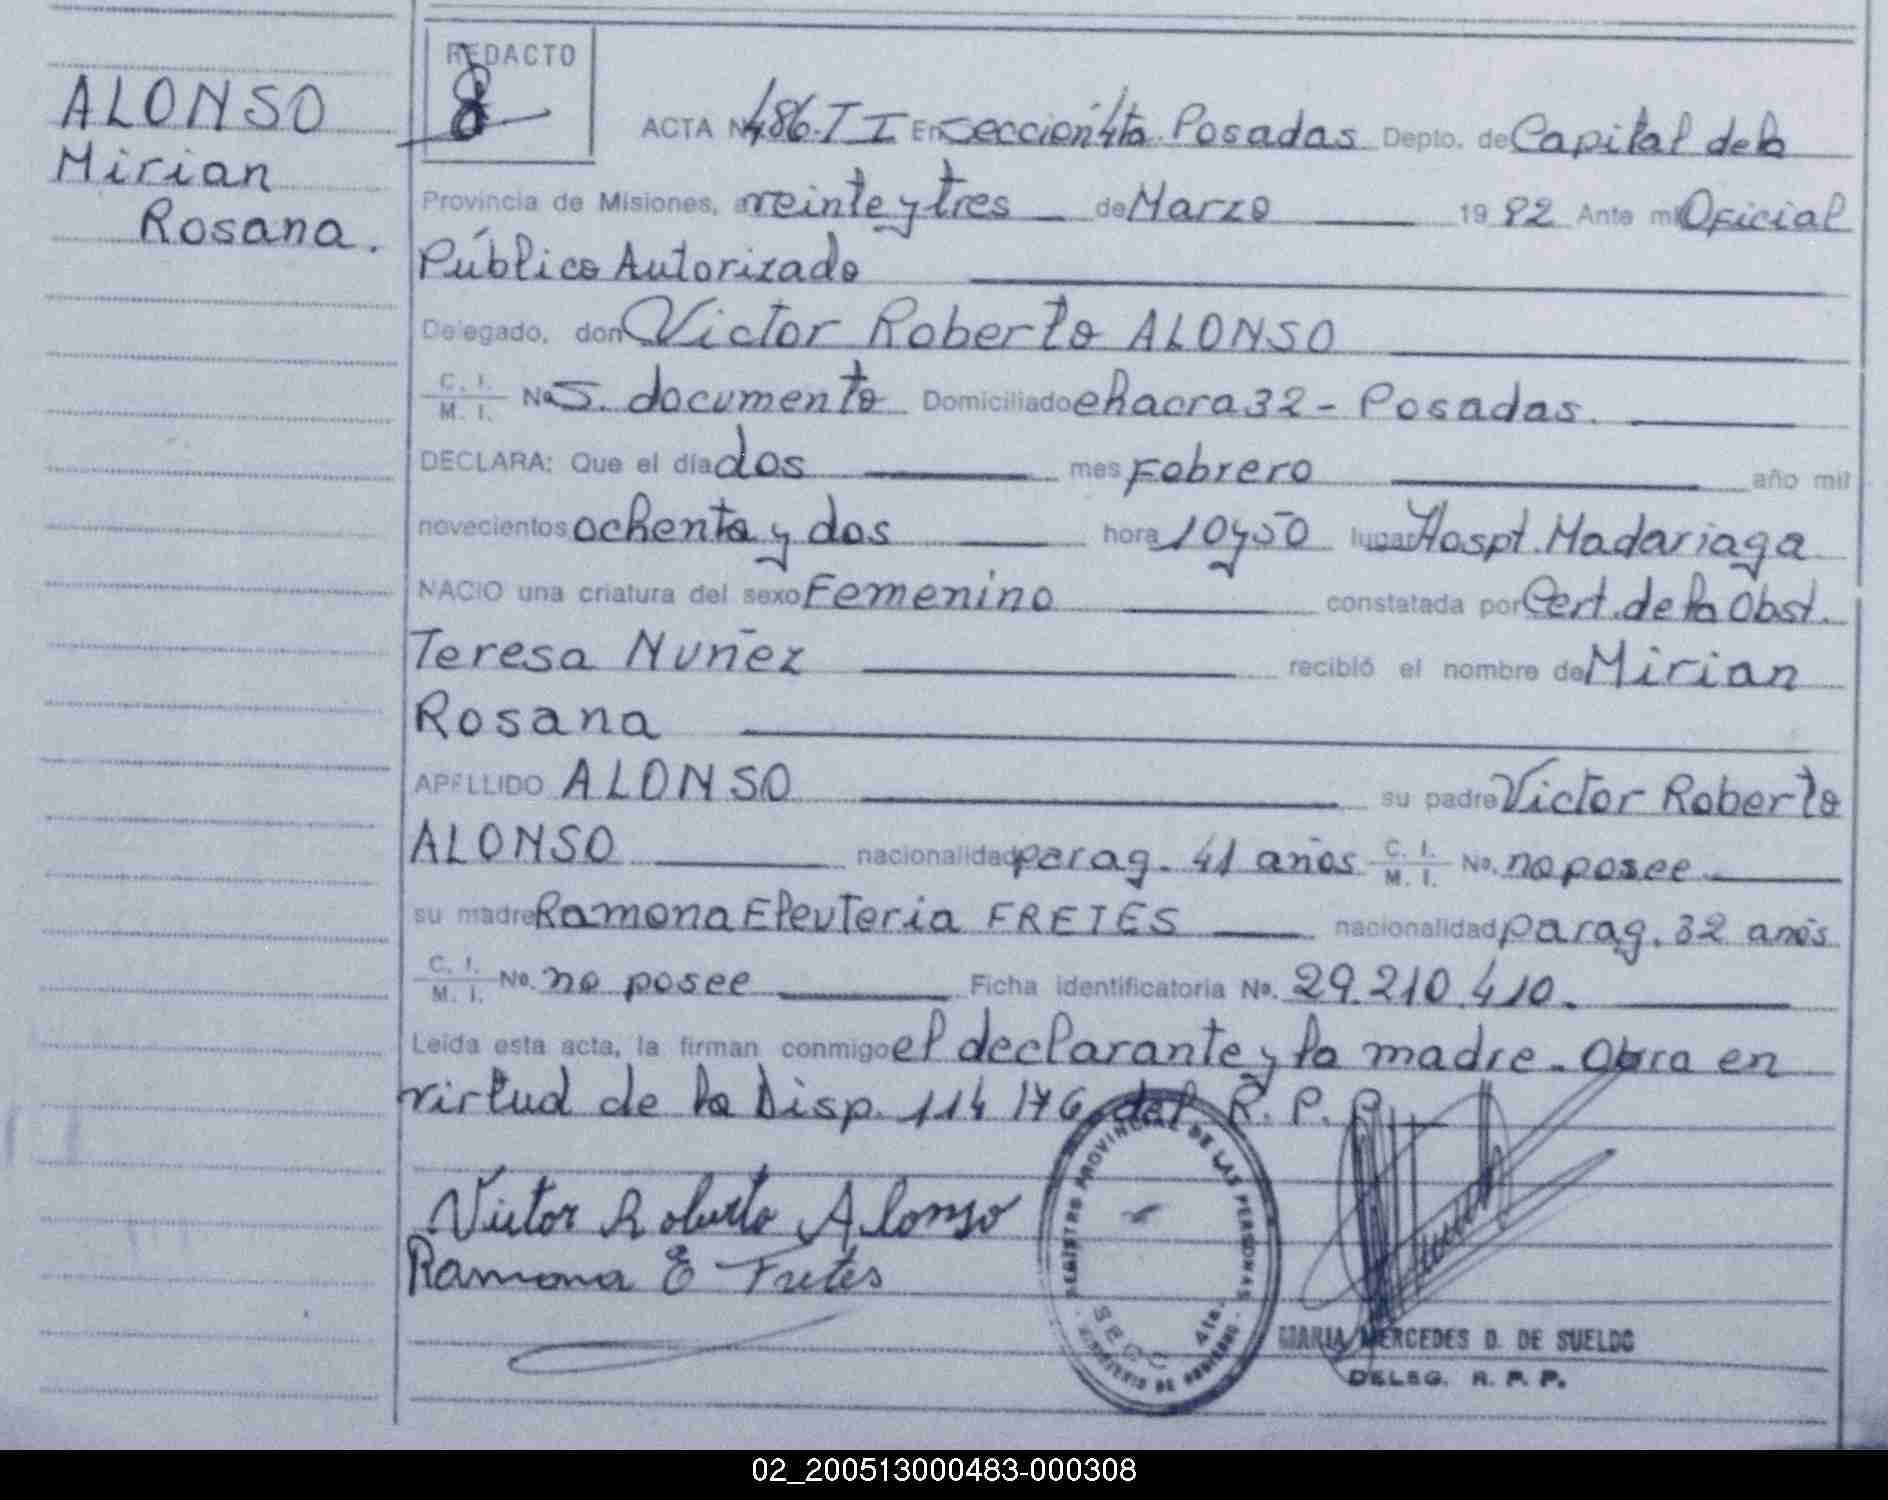 ALONSO
Mirian
Rosana.
REDACTO
ACTA Nº 486. T I En sección 4ta. Posadas Depto. de Capital de la
Provincia de Misiones, a veinte y tres de Marzo 19 82 Ante mí Oficial
Público Autorizado
Delegado, don Victor Roberto ALONSO
C. I. M. I. Nº S. documento Domiciliado chacra 32 - Posadas.
DECLARA: Que el día dos mes Febrero año mil
novecientos ochenta y dos hora 10 y 50 lugar Hospt. Madariaga
NACIO una criatura del sexo Femenino constatada por Cert. de la Obst.
Teresa Nuñez recibió el nombre de Mirian
Rosana
APELLIDO ALONSO su padre Victor Roberto
ALONSO nacionalidad parag. 41 años C. I. M. I. No. no posee
su madre Ramona Eleuteria FRETES nacionalidad parag. 32 años
C. I. M. I. No. no posee Ficha identificatoria No. 29.210.410.
Leída esta acta, la firman conmigo el declarante y la madre - Obra en
virtud de la Disp. 114/76 del R. P. P.
Victor Roberto Alonso
Ramona E Fretes
REGISTRO PROVINCIAL DE LAS PERSONAS
SECC. 4ta.
MINISTERIO DE GOBIERNO
MARIA MERCEDES D. DE SUELDO
DELEG. R. P. P.
02_200513000483-000308